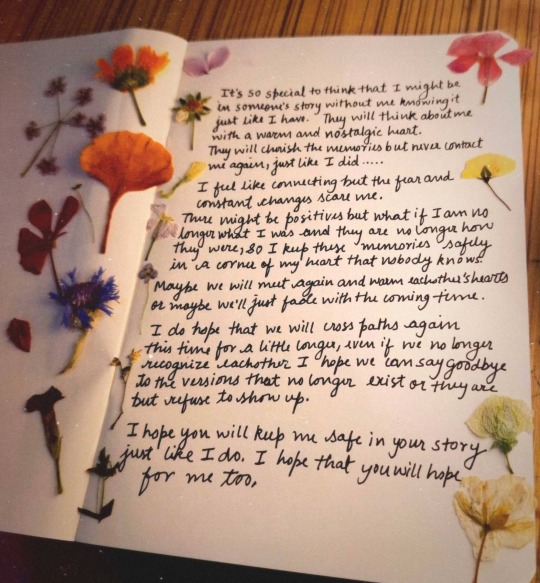 It's so special to think that I might be
in someone's story without me knowing it
just like I have. They will think about me
with a warm and nostalgic heart.
They will cherish the memories but never contact
me again, just like I did .....
I feel like connecting but the fear and
constant changes scare me.
There might be positives but what if I am no
longer what I was and they are no longer how
they were, so I keep these memories safely
in a corner of my heart that nobody knows.
Maybe we will meet again and warm eachother's hearts
or maybe we'll just fade with the coming time.
I do hope that we will cross paths again
this time for a little longer, even if we no longer
recognize eachother I hope we can say goodbye
to the versions that no longer exist or they are
but refuse to show up.
I hope you will keep me safe in your story
just like I do. I hope that you will hope
for me too.